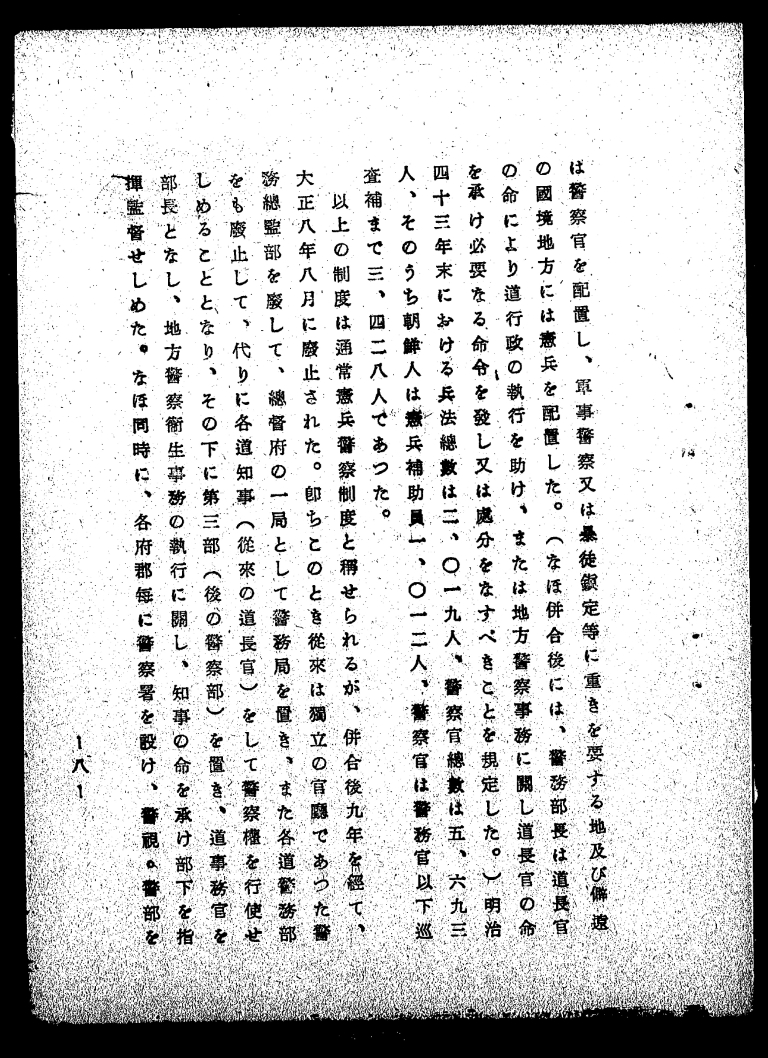 は警察官を配置し、軍事警察又は暴徒鎭定等に重きを要する地及び僻遠
の國境地方には憲兵を配置した。（なほ併合後には、警務部長は道長官
の命により道行政の執行を助け、または地方警察事務に關し道長官の命
を承け必要なる命令を發し又は處分をなすべきことを規定した。）明治
四十三年末における兵法總數は二、〇一九人、警察官總數は五、六九三
人、そのうち朝鮮人は憲兵補助員一、〇一二人、警察官は警務官以下巡
査補まで三、四二八人であつた。
以上の制度は通常憲兵警察制度と稱せられるが、併合後九年を經て、
大正八年八月に廢止された。卽ちこのとき從來は獨立の官廳であつた警
務總監部を廢して、總督府の一局として警務局を置き、また各道警務部
をも廢止して、代りに各道知事（從來の道長官）をして警察權を行使せ
しめることとなり、その下に第三部（後の警察部）を置き、道事務官を
部長となし、地方警察衞生事務の執行に關し、知事の命を承け部下を指
揮監督せしめた。なほ同時に、各府郡每に警察署を設け、警視。警部を
ー八ー